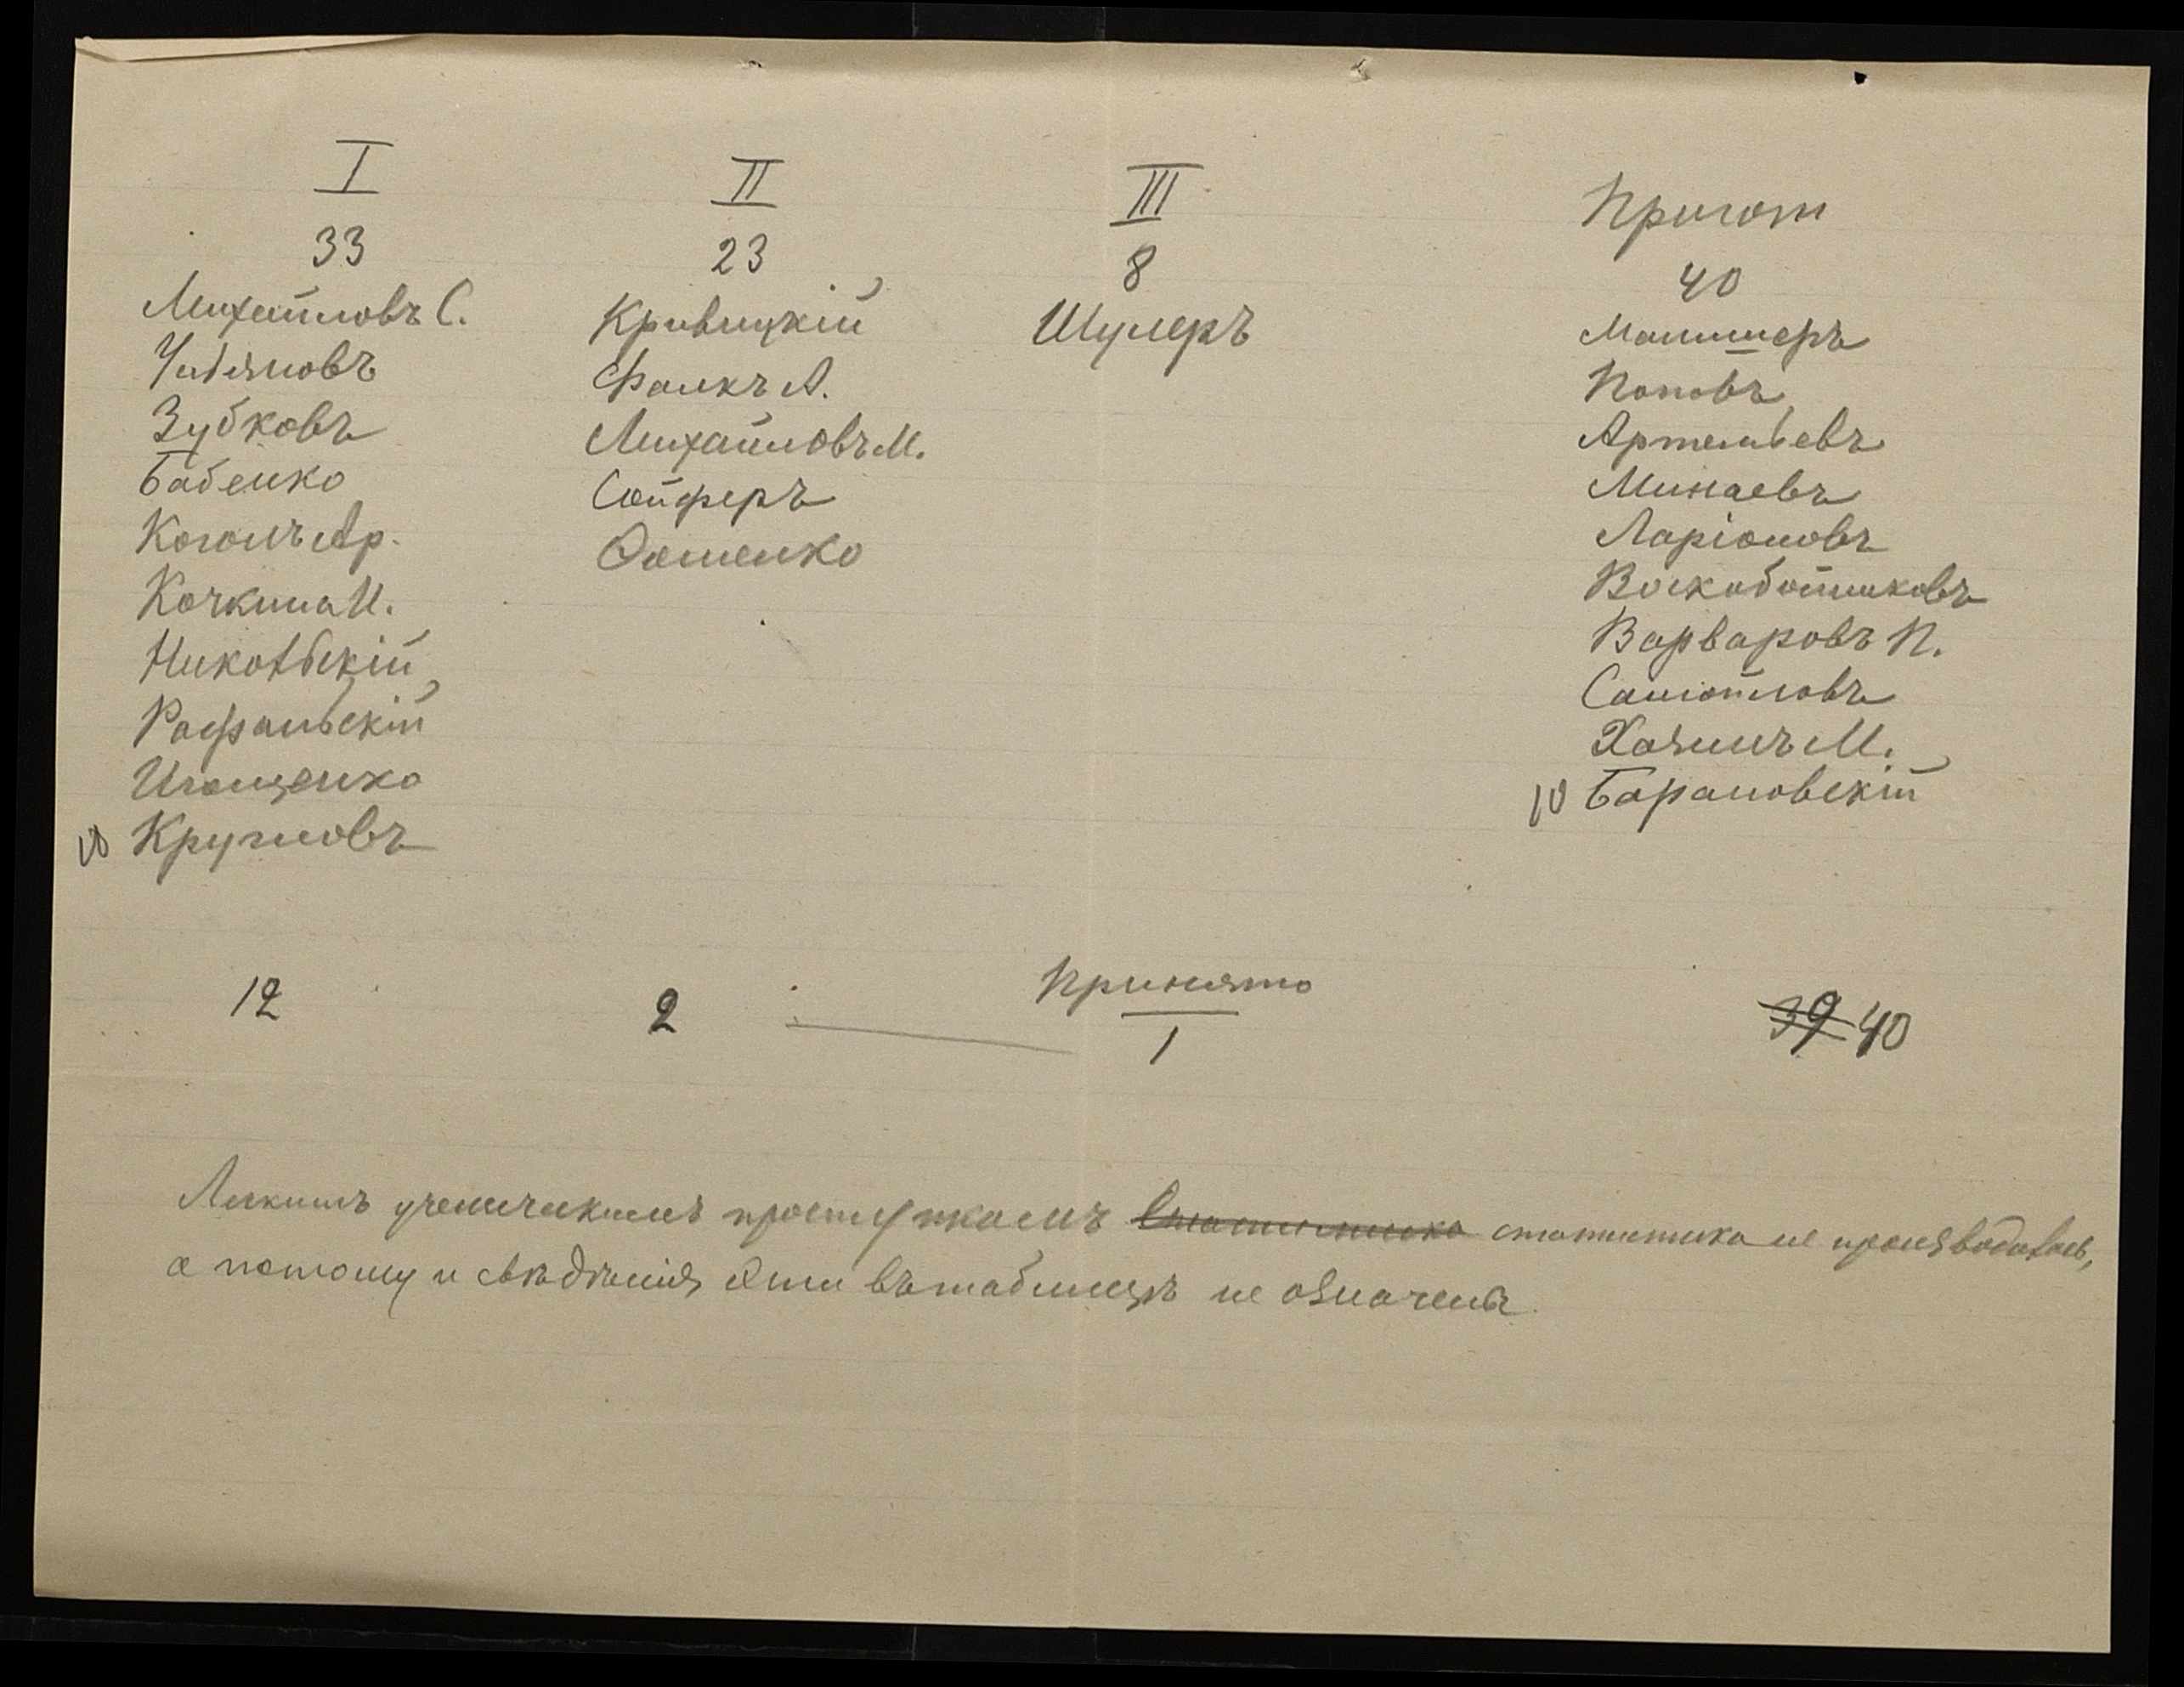 I
33
Михайловъ С.
Зубковъ
Бабенко
Коганъ Ар.
Кочкинъ И.
Никольскій
Рафальскій
Игощенко
10 Кругловъ
12
II
23
Кривицкій
Фалкъ А.
Михайловъ М.
Сойферъ
Фоменко
2
III
8
Шулеръ
Принято
1
Пригот
40
Поповъ
Артемьевъ
Минаевъ
Ларіоновъ
Воскобойниковъ
Варваровъ П.
Самойловъ
Хазинъ М.
10 Барановскій
39 40
Легкимъ ученическимъ проступкамъ Статистика статистика не производилась,
а потому и свѣдѣнія эти въ таблицѣ не означены.